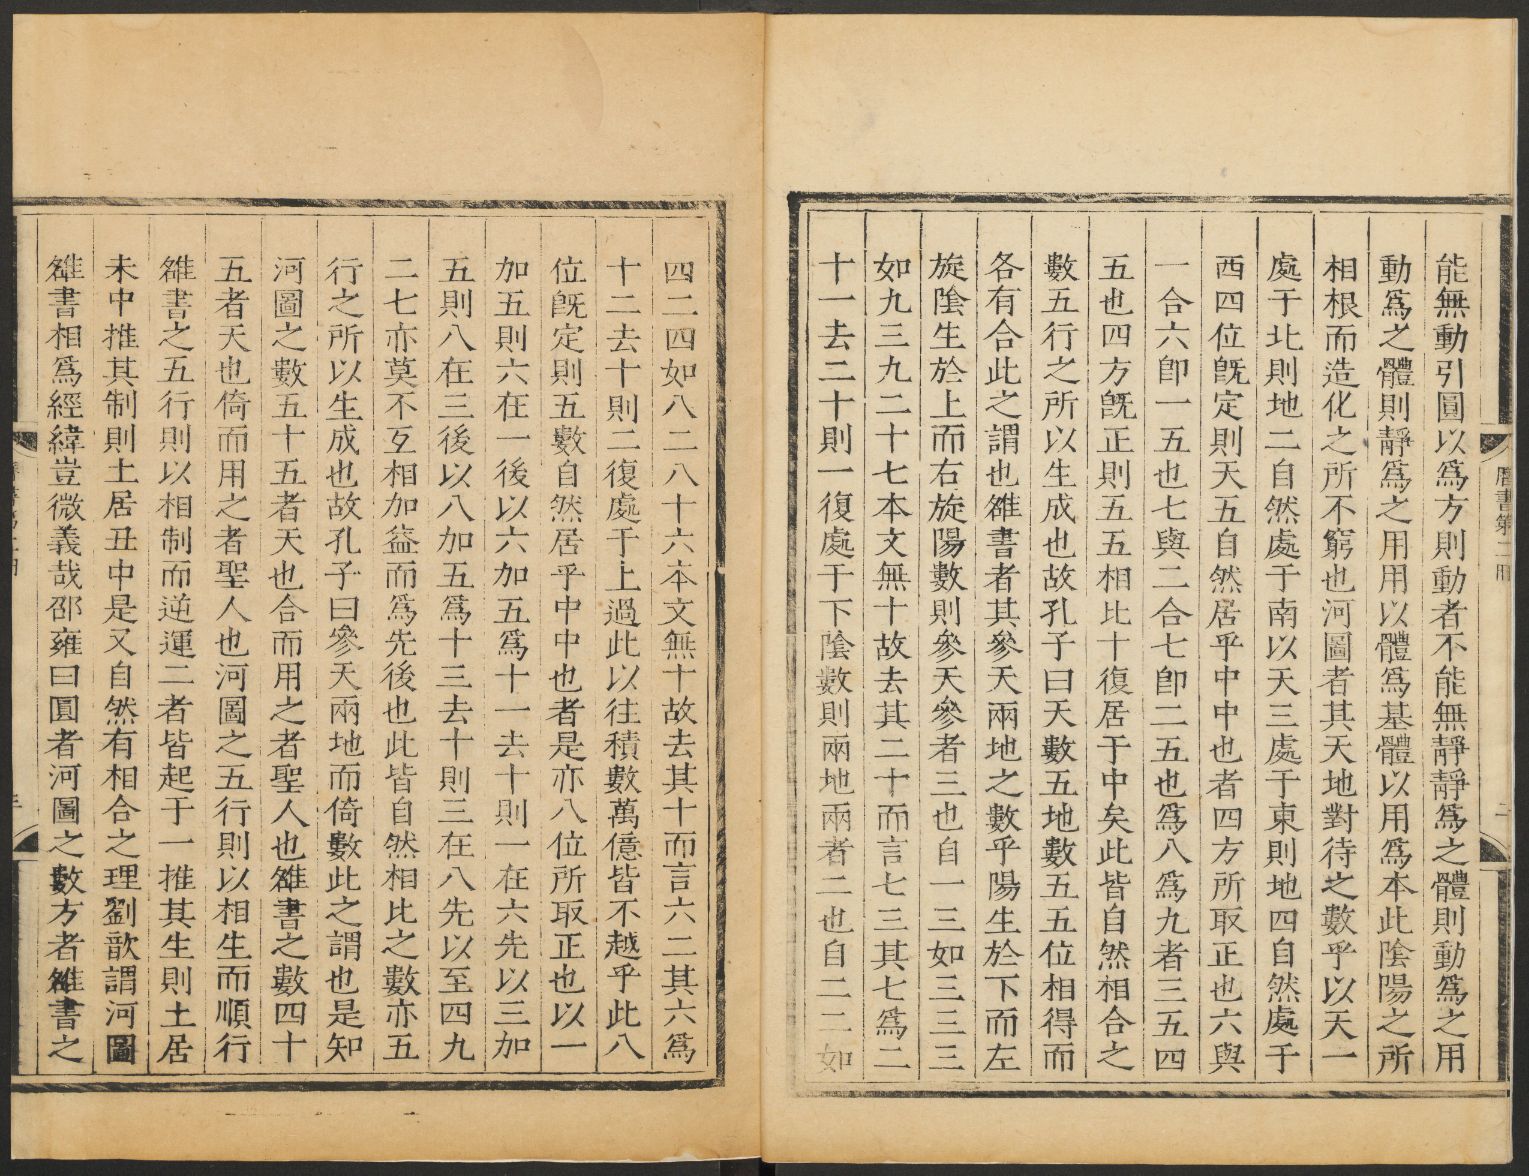 能無動引圓以爲方則動者不能無靜靜爲之體則動爲之用
動爲之體則靜爲之用用以體爲基體以用爲本此陰陽之所
相根而造化之所不窮也河圖者其天地對待之數乎以天一
處于北則地二自然處于南以天三處于東則地四自然處于
西四位旣定則天五自然居乎中中也者四方所取正也六與
一合六卽一五也七與二合七卽二五也爲八爲九者三五四
五也四方旣正則五五相比十復居于中矣此皆自然相合之
數五行之所以生成也故孔子曰天數五地數五五位相得而
各有合此之謂也雒書者其參天兩地之數乎陽生於下而左
旋陰生於上而右旋陽數則參天參者三也自一三如三三三
如九三九二十七本文無十故去其二十而言七三其七爲二
十一去二十則一復處于下陰數則兩地兩者二也自二二如
曆書第二冊
二
四二四如八二八十六本文無十故去其十而言六二其六爲
十二去十則二復處于上過此以往積數萬億皆不越乎此八
位旣定則五數自然居乎中中也者是亦八位所取正也以一
加五則六在一後以六加五爲十一去十則一在六先以三加
五則八在三後以八加五爲十三去十則三在八先以至四九
二七亦莫不互相加益而爲先後也此皆自然相比之數亦五
行之所以生成也故孔子曰參天兩地而倚數此之謂也是知
河圖之數五十五者天也合而用之者聖人也雒書之數四十
五者天也倚而用之者聖人也河圖之五行則以相生而順行
雒書之五行則以相制而逆運二者皆起于一推其生則土居
未中推其制則土居丑中是又自然有相合之理劉歆謂河圖
雒書相爲經緯豈微義哉邵雍曰圓者河圖之數方者雒書之